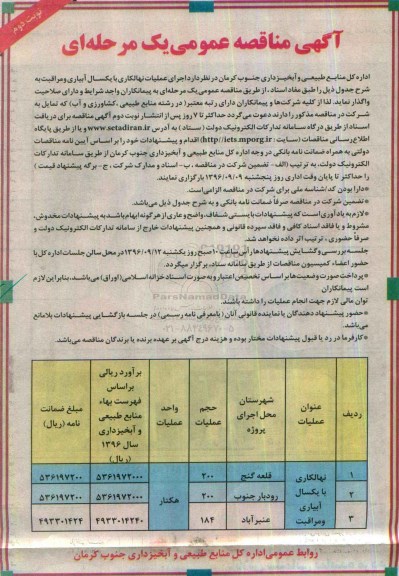 نوبت دوم
آگهی مناقصه عمومی یک مرحله‌ای
اداره کل منابع طبیعی و آبخیزداری جنوب کرمان در نظر دارد اجرای عملیات نهالکاری با یکسال آبیاری و مراقبت به
شرح جدول ذیل را طبق مفاد اسناد، از طریق مناقصه عمومی یک مرحله‌ای به پیمانکاران واجد شرایط و دارای صلاحیت
واگذار نماید. لذا از کلیه شرکت‌ها و پیمانکاران دارای رتبه معتبر (در رشته منابع طبیعی، کشاورزی و آب) که تمایل به
شرکت در مناقصه مذکور را دارند دعوت می‌گردد حداکثر تا ۷ روز پس از انتشار نوبت دوم آگهی مناقصه برای دریافت
اسناد از طریق درگاه سامانه تدارکات الکترونیک دولت (ستاد) به آدرس www.setadiran.ir و یا از طریق پایگاه
اطلاع رسانی مناقصات (سایت: http://iets.mporg.ir) اقدام و پیشنهادات خود را بر اساس آیین نامه مناقصات
دولتی به همراه ضمانت نامه بانکی در وجه اداره کل منابع طبیعی و آبخیزداری جنوب کرمان از طریق سامانه تدارکات
الکترونیک دولت، به ترتیب (الف- تضمین شرکت در مناقصه، ب- اسناد و مدارک شرکت، ج- برگه پیشنهاد قیمت)
را حداکثر تا پایان وقت اداری روز پنجشنبه ۱۳۹۶/۰۹/۰۹ بارگزاری نمایند.
*دارا بودن کد/شناسه ملی برای شرکت در مناقصه الزامی است.
*تضمین شرکت در مناقصه صرفاً ضمانت نامه بانکی و به شرح جدول ذیل می‌باشد.
*لازم به یادآوری است که پیشنهادات بایستی شفاف، واضح و عاری از هر گونه ابهام باشد به پیشنهادات مخدوش،
مشروط و یا فاقد اسناد کافی و فاقد سپرده قانونی و همچنین پیشنهادات خارج از سامانه تدارکات الکترونیک دولت و
صرفاً حضوری، ترتیب اثر داده نخواهد شد.
جلسه بررسی و گشایش پیشنهادها رأس ساعت ۱۰ صبح روز یکشنبه ۱۳۹۶/۰۹/۱۲ در محل سالن جلسات اداره کل با
حضور اعضاء کمیسیون مناقصات از طریق سامانه ستاد، برگزار میگردد.
*پرداختِ صورت وضعیت‌ها بر اساس تخصیص اعتبار و به صورت اسناد خزانه اسلامی (اوراق) می‌باشد، بنابراین لازم
است پیمانکاران
توان مالی لازم جهت انجام عملیات را داشته باشند.
*حضور پیشنهاد دهندگان یا نماینده قانونی آنان (با معرفی نامه رسمی) در جلسه بازگشایی پیشنهادات بلامانع
می‌باشد.
*کارفرما در رد یا قبول پیشنهادات مختار بوده و هزینه درج آگهی بر عهده برنده یا برندگان مناقصه می‌باشد.
ParsNamadData
۰۲۱-۸۸۳۴۹۶۷۰-۵
ردیف | عنوان عملیات | شهرستان محل اجرای پروژه | حجم عملیات | واحد عملیات | برآورد ریالی براساس فهرست بهاء منابع طبیعی و آبخیزداری سال ۱۳۹۶ (ریال) | مبلغ ضمانت نامه (ریال)
۱ | نهالکاری با یکسال آبیاری ومراقبت | قلعه گنج | ۲۰۰ | هکتار | ۵۳۶۱۹۷۲۰۰۰ | ۵۳۶۱۹۷۲۰۰
۲ | رودبار جنوب | ۲۰۰ | ۵۳۶۱۹۷۲۰۰۰ | ۵۳۶۱۹۷۲۰۰
۳ | عنبرآباد | ۱۸۴ | ۴۹۳۳۰۱۴۲۴۰ | ۴۹۳۳۰۱۴۲۴
روابط عمومی اداره کل منابع طبیعی و آبخیزداری جنوب کرمان